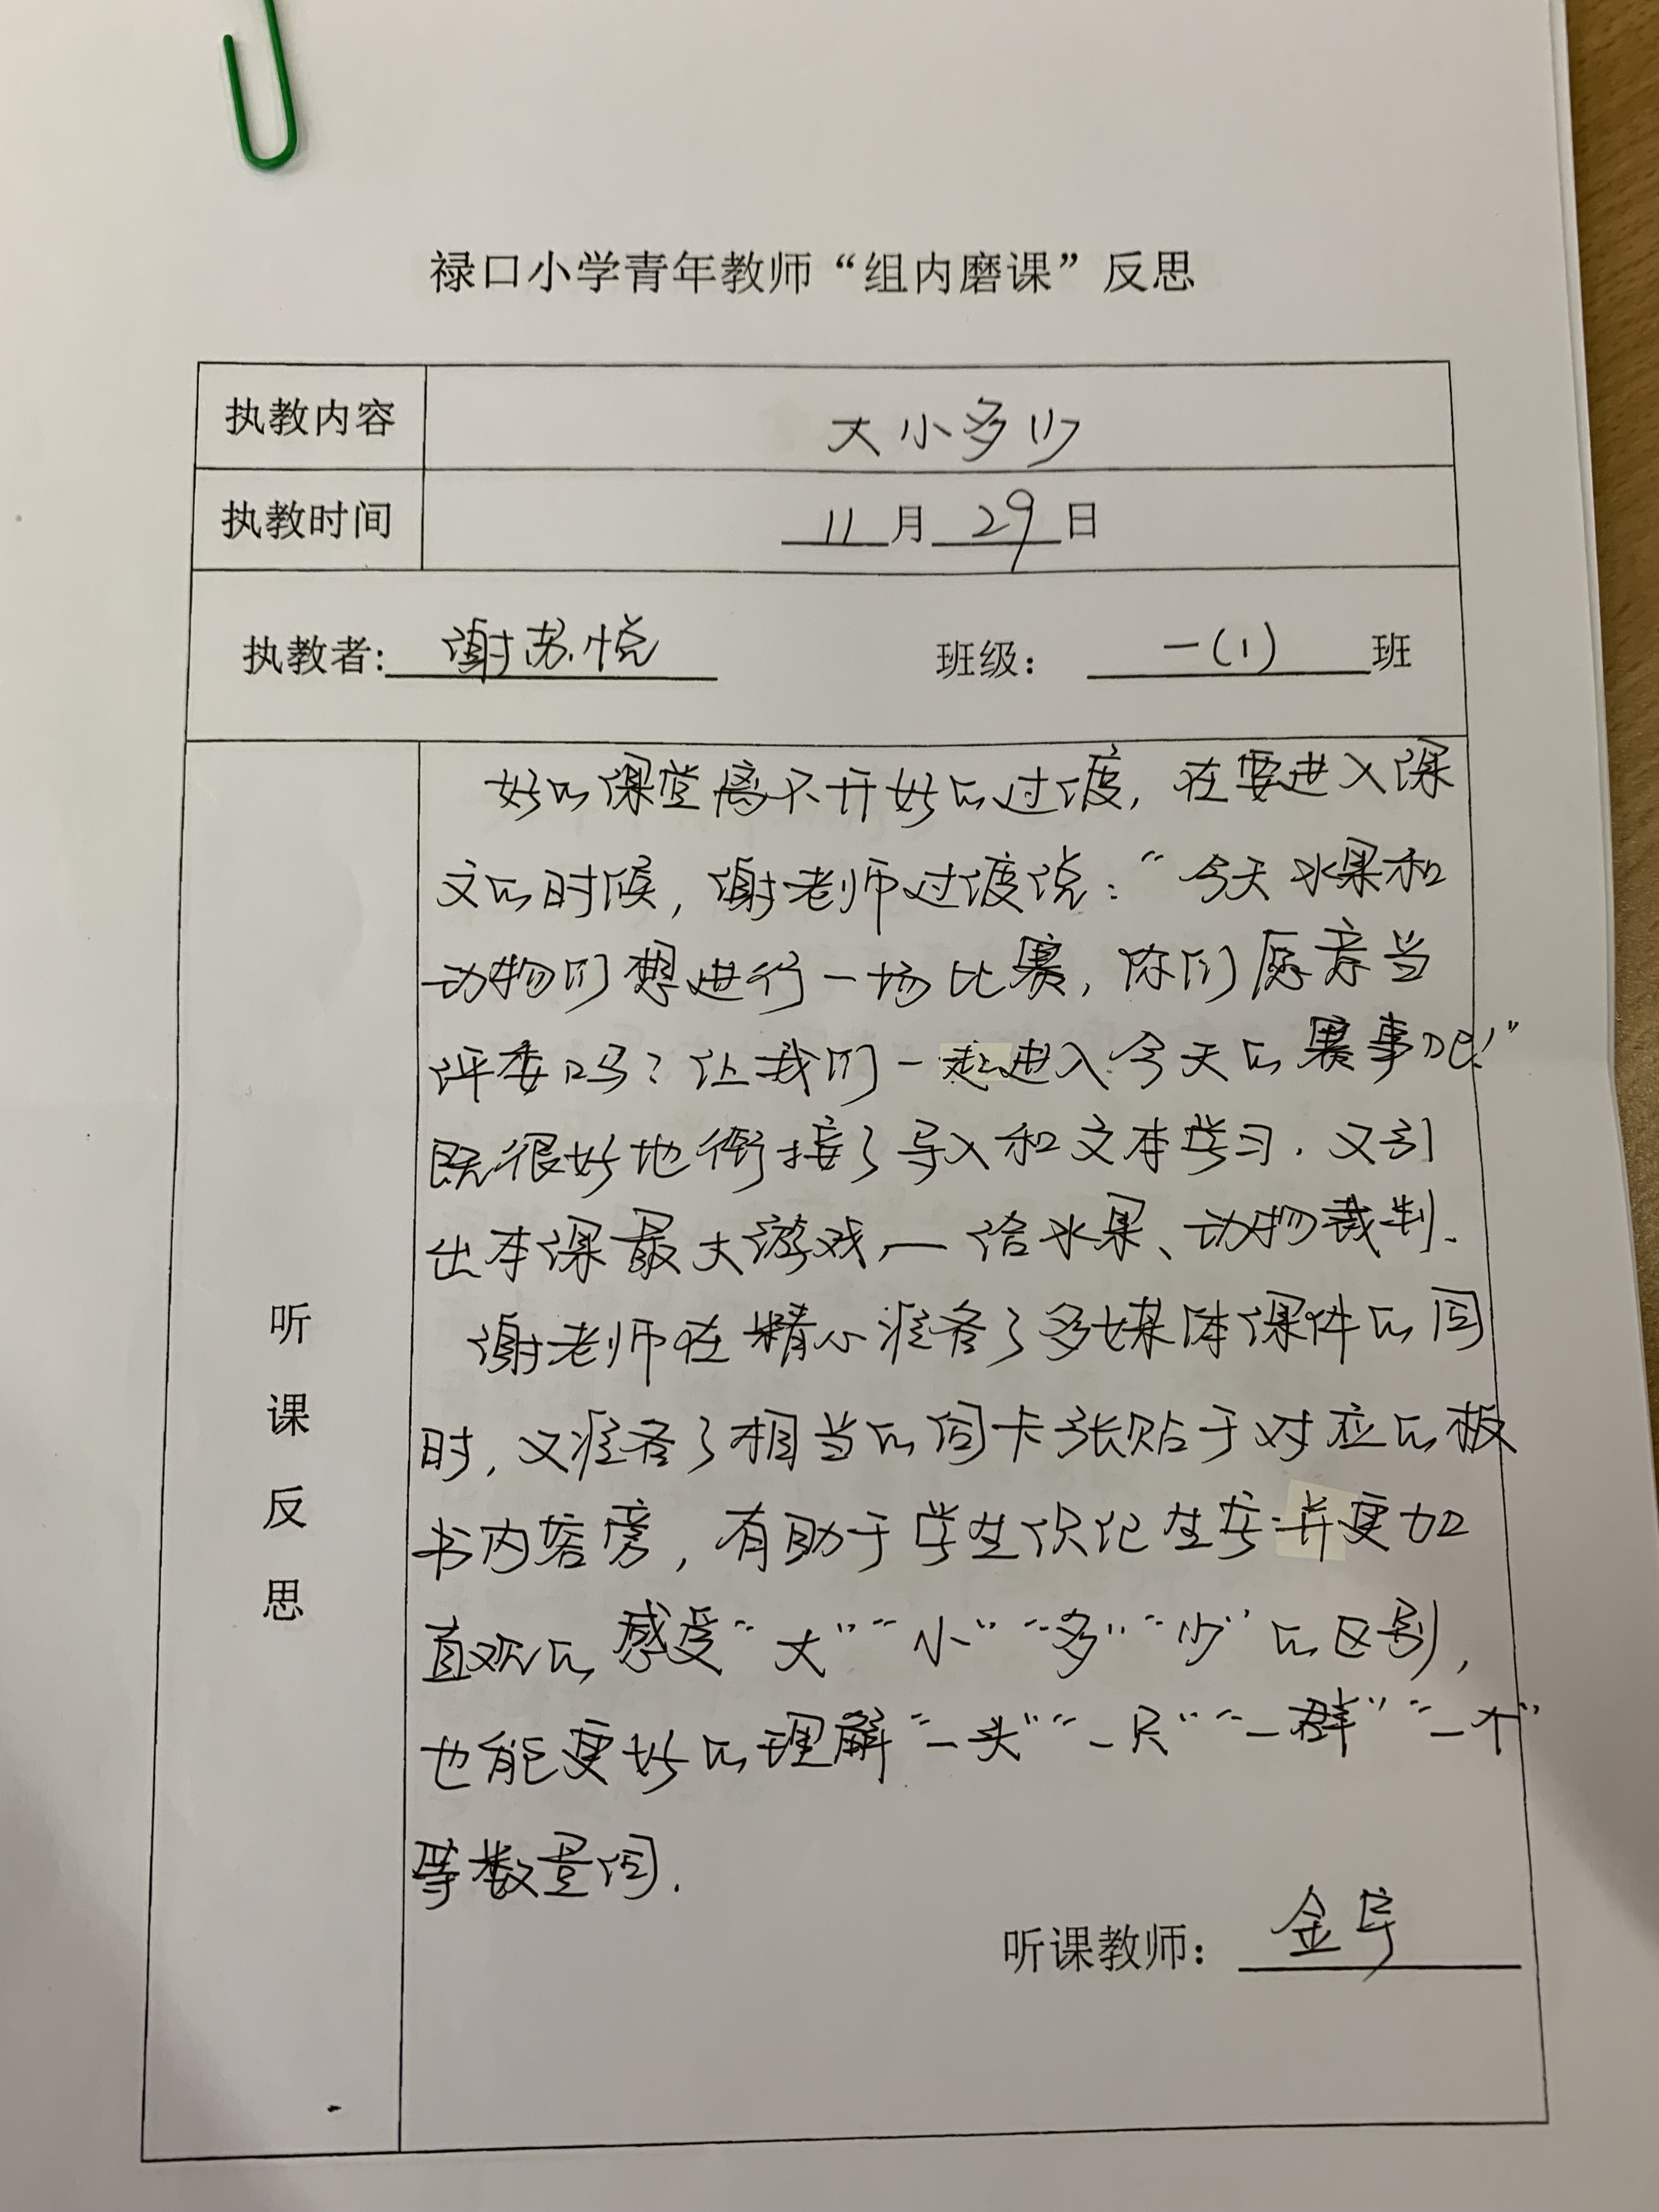 禄口小学青年教师“组内磨课”反思
执教内容
大小多少
执教时间
11月29日
执教者:谢苏悦 班级：一(1)班
听课反思
好的课堂离不开好的过渡，在要进入课
文的时候，谢老师过渡说：“今天水果和
动物们想进行一场比赛，你们愿意当
评委吗？让我们一起进入今天的赛事吧！”
既很好地衔接了导入和文本学习，又引
出本课最大游戏——给水果、动物裁判.
谢老师在精心准备了多媒体课件的同
时，又准备了相当的词卡张贴于对应的板
书内容旁，有助于学生识记生字并更加
直观的感受“大”“小”“多”“少”的区别，
也能更好的理解“一头”“一只”“一群”“一个”
等数量词.
听课教师：金宇